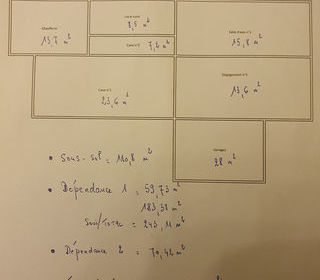 Chaufferie
13,7 m²
8,5 m²
Cave n°2
7,2 m²
Salle d'eau n°1
15,8 m²
Cave n°1
23,6 m²
Dégagement n°1
13,6 m²
Garages
28 m²
• Sous-sol = 110,8 m²
• Dépendance 1 = 59,73 m²
183,38 m²
Sous/Total = 243,11 m²
• Dépendance 2 = 70,42 m²